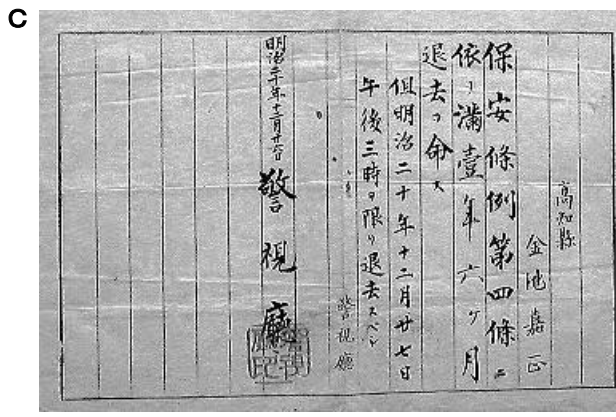 C
高知縣
金池嘉正
保安條例第四條ニ
依リ滿壹年六ケ月
退去ヲ命ス
但明治二十年十二月廿七日
午後三時ヲ限リ退去スベシ
警視廳
明治二十年十二月廿六日
警視廳